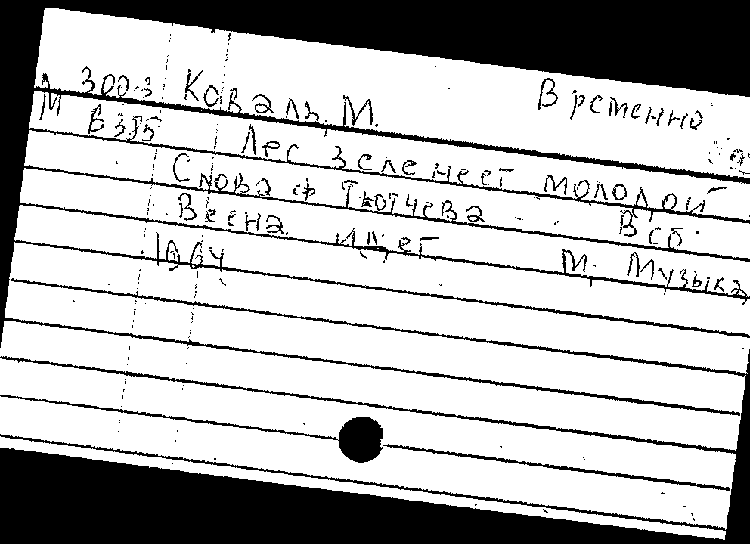 М 300-3 Коваль, М. Временно
В 385 Лес зеленеет молодой
Слова Ф Тютчева В сб
Весна идет М; Музыка,
1964